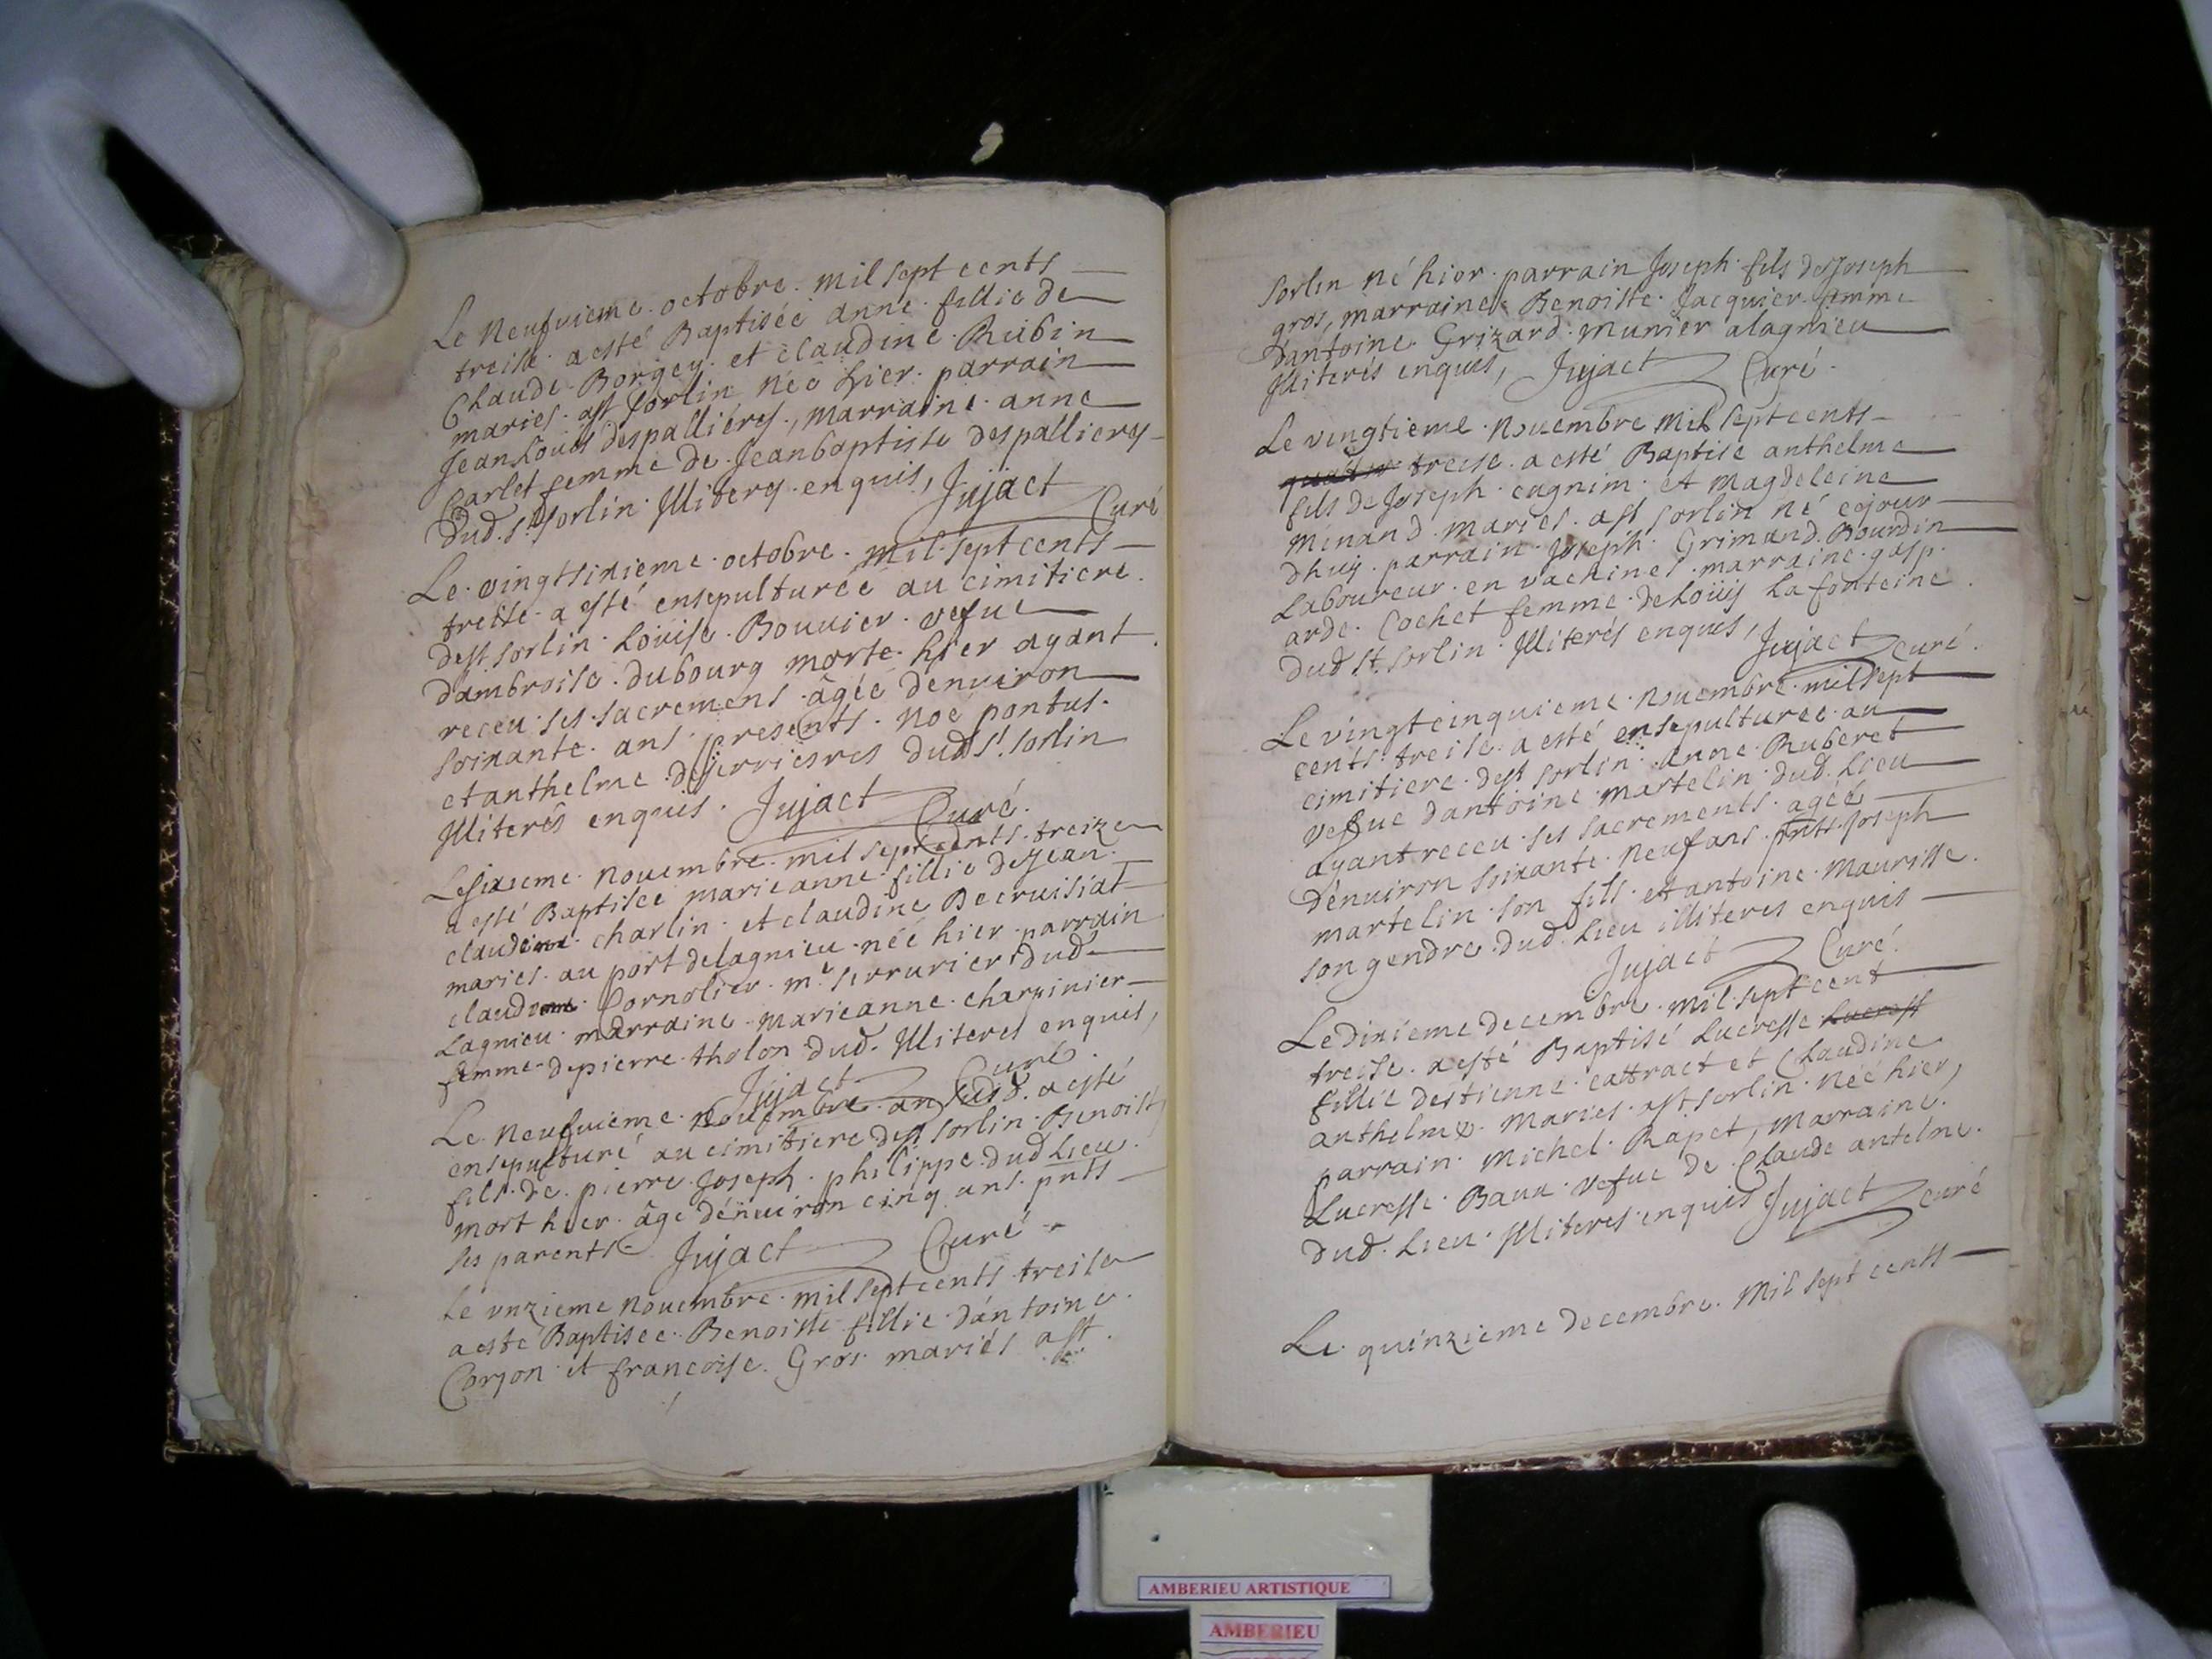 Le Neufvieme octobre mil sept cents
treise a esté Baptisée anne fillie de
Claude Borgey et claudine Rubin
mariés a st sorlin née hier parrain
Jean Louis despallieres, marraine anne
Carlet femme de Jeanbaptiste despallieres
dud. st sorlin Illiterés enquis, Jujact Curé
Le vingtsixieme octobre mil sept cents
treise a esté ensepulturée au cimitiere
de st sorlin Louise Bouvier vefue
d'ambroise dubourg morte hier ayant
receu ses sacremens âgée denuiron
soixante ans presents Noe pontus
et anthelme desserrieres dud st sorlin
Illiterés enquis Jujact Curé
Le sixieme nouembre mil sept cents treize
a esté Baptisée marie anne fillie de Jean
claude charlin et claudine Decruisiat
mariés au port de lagnieu née hier parrain
claude Cornolier me serrurier dud
Lagnieu marraine marieanne charpinier
femme de pierre tholon dud. Illiteres enquis,
Jujact Curé
Le Neufuieme Nouembre an susd. a esté
ensepulturé au cimitiere de st sorlin Benoist
fils de pierre Joseph philippe dud Lieu
mort hier âge dénuiron cinq ans pnts
ses parents Jujact Curé
Le vnzieme nouembre mil sept cents treise
a esté Baptisee Benoiste fillie dántoine
Corjon et francoise Gros mariés a st
sorlin né hier parrain Joseph fils de Joseph
gros, marraine Benoiste Jacquier femme
d'antoine Grizard munier a lagnieu
Illiterés enquis, Jujact Curé
Le vingtieme Nouembre mil sept cents
quatre treise a esté Baptise anthelme
fils de Joseph cugnim et Magdeleine
Minand mariés a st sorlin né cejour
dhuy parrain Joseph Grimand Bourdin
Laboureur en vachines marraine gasp
arde Cochet femme de Loüis La fonteine
dud st sorlin Illiterés enquis, Jujact curé
Le vingt cinquieme Nouembre mil sept
cents treise a esté ensepulturée au
cimitiere de st sorlin Anne Ruberet
vefue dantoine martelin dud. Lieu
ayant receu ses sacrements agée
dénuiron soixante Neuf ans pnts Joseph
martelin son fils et antoine Maurisse
son gendre dud. Lieu illiteres enquis
Jujact Curé
Le dixieme decembre mil sept cent
treise a esté Baptisé Lucresse Lucress
fillie destienne cattract et Claudine
anthelme mariés a st sorlin née hier,
parrain Michel Rapet, marraine
Lucresse Baux vefue de Claude antelme
dud. Lieu Illiteres enquis Jujact curé
Le quinzieme decembre mil sept cents
AMBERIEU ARTISTIQUE
AMBERIEU